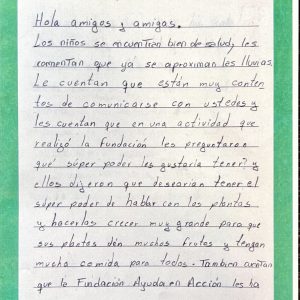 Hola amigos y amigas.
Los niños se encuentran bien de salud, les
comentan que ya se aproximan les lluvias.
Le cuentan que están muy conten
tos de comunicarse con ustedes y
les cuentan que en una actividad que
realizó la fundación les preguntaron
qué súper poder les gustaría tener? y
ellos dijeron que desearían tener el
súper poder de hablar con las plantas
y hacerlas crecer muy grande para que
sus plantas den muchos frutos y tengan
mucha comida para todos. Tambien cuentan
que la Fundación Ayuda en Acción les ha